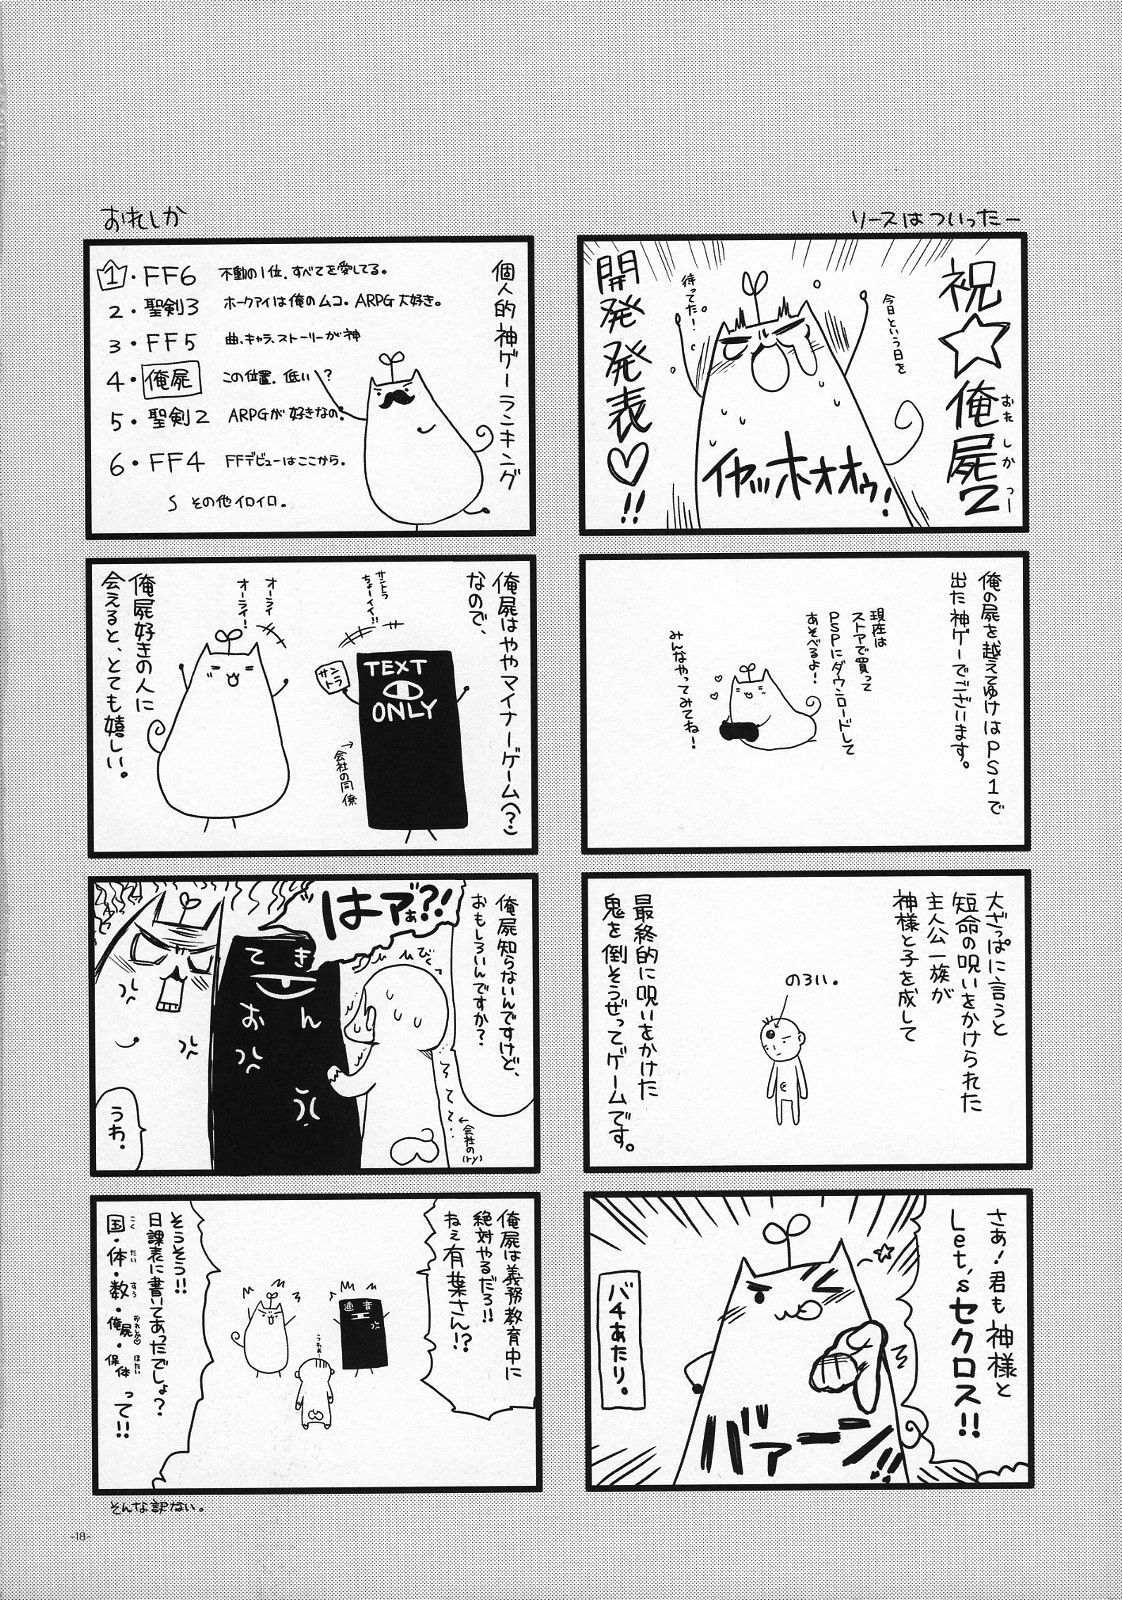 リースはついったー
祝☆俺屍2
おれしかつー
今日という日を
待ってた!
開発発表♡!!
イヤッホオオゥ!
俺の屍を越えてゆけはPS1で
出た神ゲーでございます。
現在は
ストアで買って
PSPにダウンロードして
あそべるよ!
みんなやってみてね!
大ざっぱに言うと
短命の呪いをかけられた
主人公一族が
神様と子を成して
のろい。
最終的に呪いをかけた
鬼を倒そうぜってゲームです。
さぁ!君も神様と
Let'sセクロス!!
バァーン!!
バチあたり。
おれしか
個人的神ゲーランキング
1・FF6 不動の1位、すべてを愛してる。
2・聖剣3 ホークアイは俺のムコ。ARPG大好き。
3・FF5 曲、キャラ、ストーリーが神
4・俺屍 この位置、低い?
5・聖剣2 ARPGが好きなの。
6・FF4 FFデビューはここから。
その他イロイロ。
俺屍はややマイナーゲーム(?)
なので、
サントラ
ちょーイイ!!
サントラ
TEXT
ONLY
→会社の同僚
オーライ
オーライ!
俺屍好きの人に
会えると、とても嬉しい。
俺屍知らないんですけど、
おもしろいんですか?
はァあ?!
びくっ
てきおん
←会社の(ry)
うわ。
俺屍は義務教育中に
絶対やるだろ!!
ねぇ有葉さん!?
適音
そうそう!!
日課表に書いてあったでしょ?
国・体・数・俺屍・保体って!!
こく たい すう おれしか ほたい
そんな訳ない。
-18-